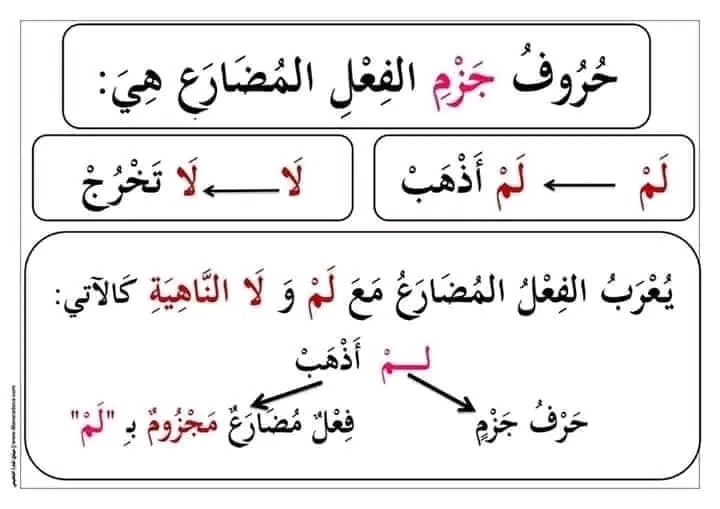 حُرُوفُ جَزْمِ الفِعْلِ المُضَارَعِ هِيَ:
لَمْ ← لَمْ أَذْهَبْ
لَا ← لَا تَخْرُجْ
يُعْرَبُ الفِعْلُ المُضَارَعُ مَعَ لَمْ وَ لَا النَّاهِيَةِ كَالآتي:
لـــمْ أَذْهَبْ
حَرْفُ جَزْمٍ
فِعْلٌ مُضَارَعٌ مَجْزُومٌ بـِ "لَمْ"